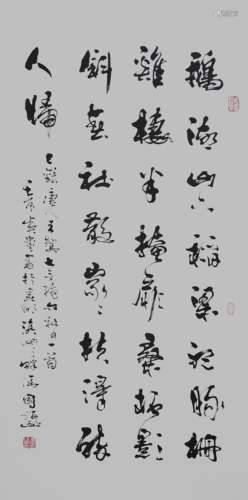 鵝湖山下稻粱肥豚柵
雞棲半掩扉桑柘影
斜春社散家々扶得醉
人歸
錄唐人王駕七言絕句社日一首
於昆明滇